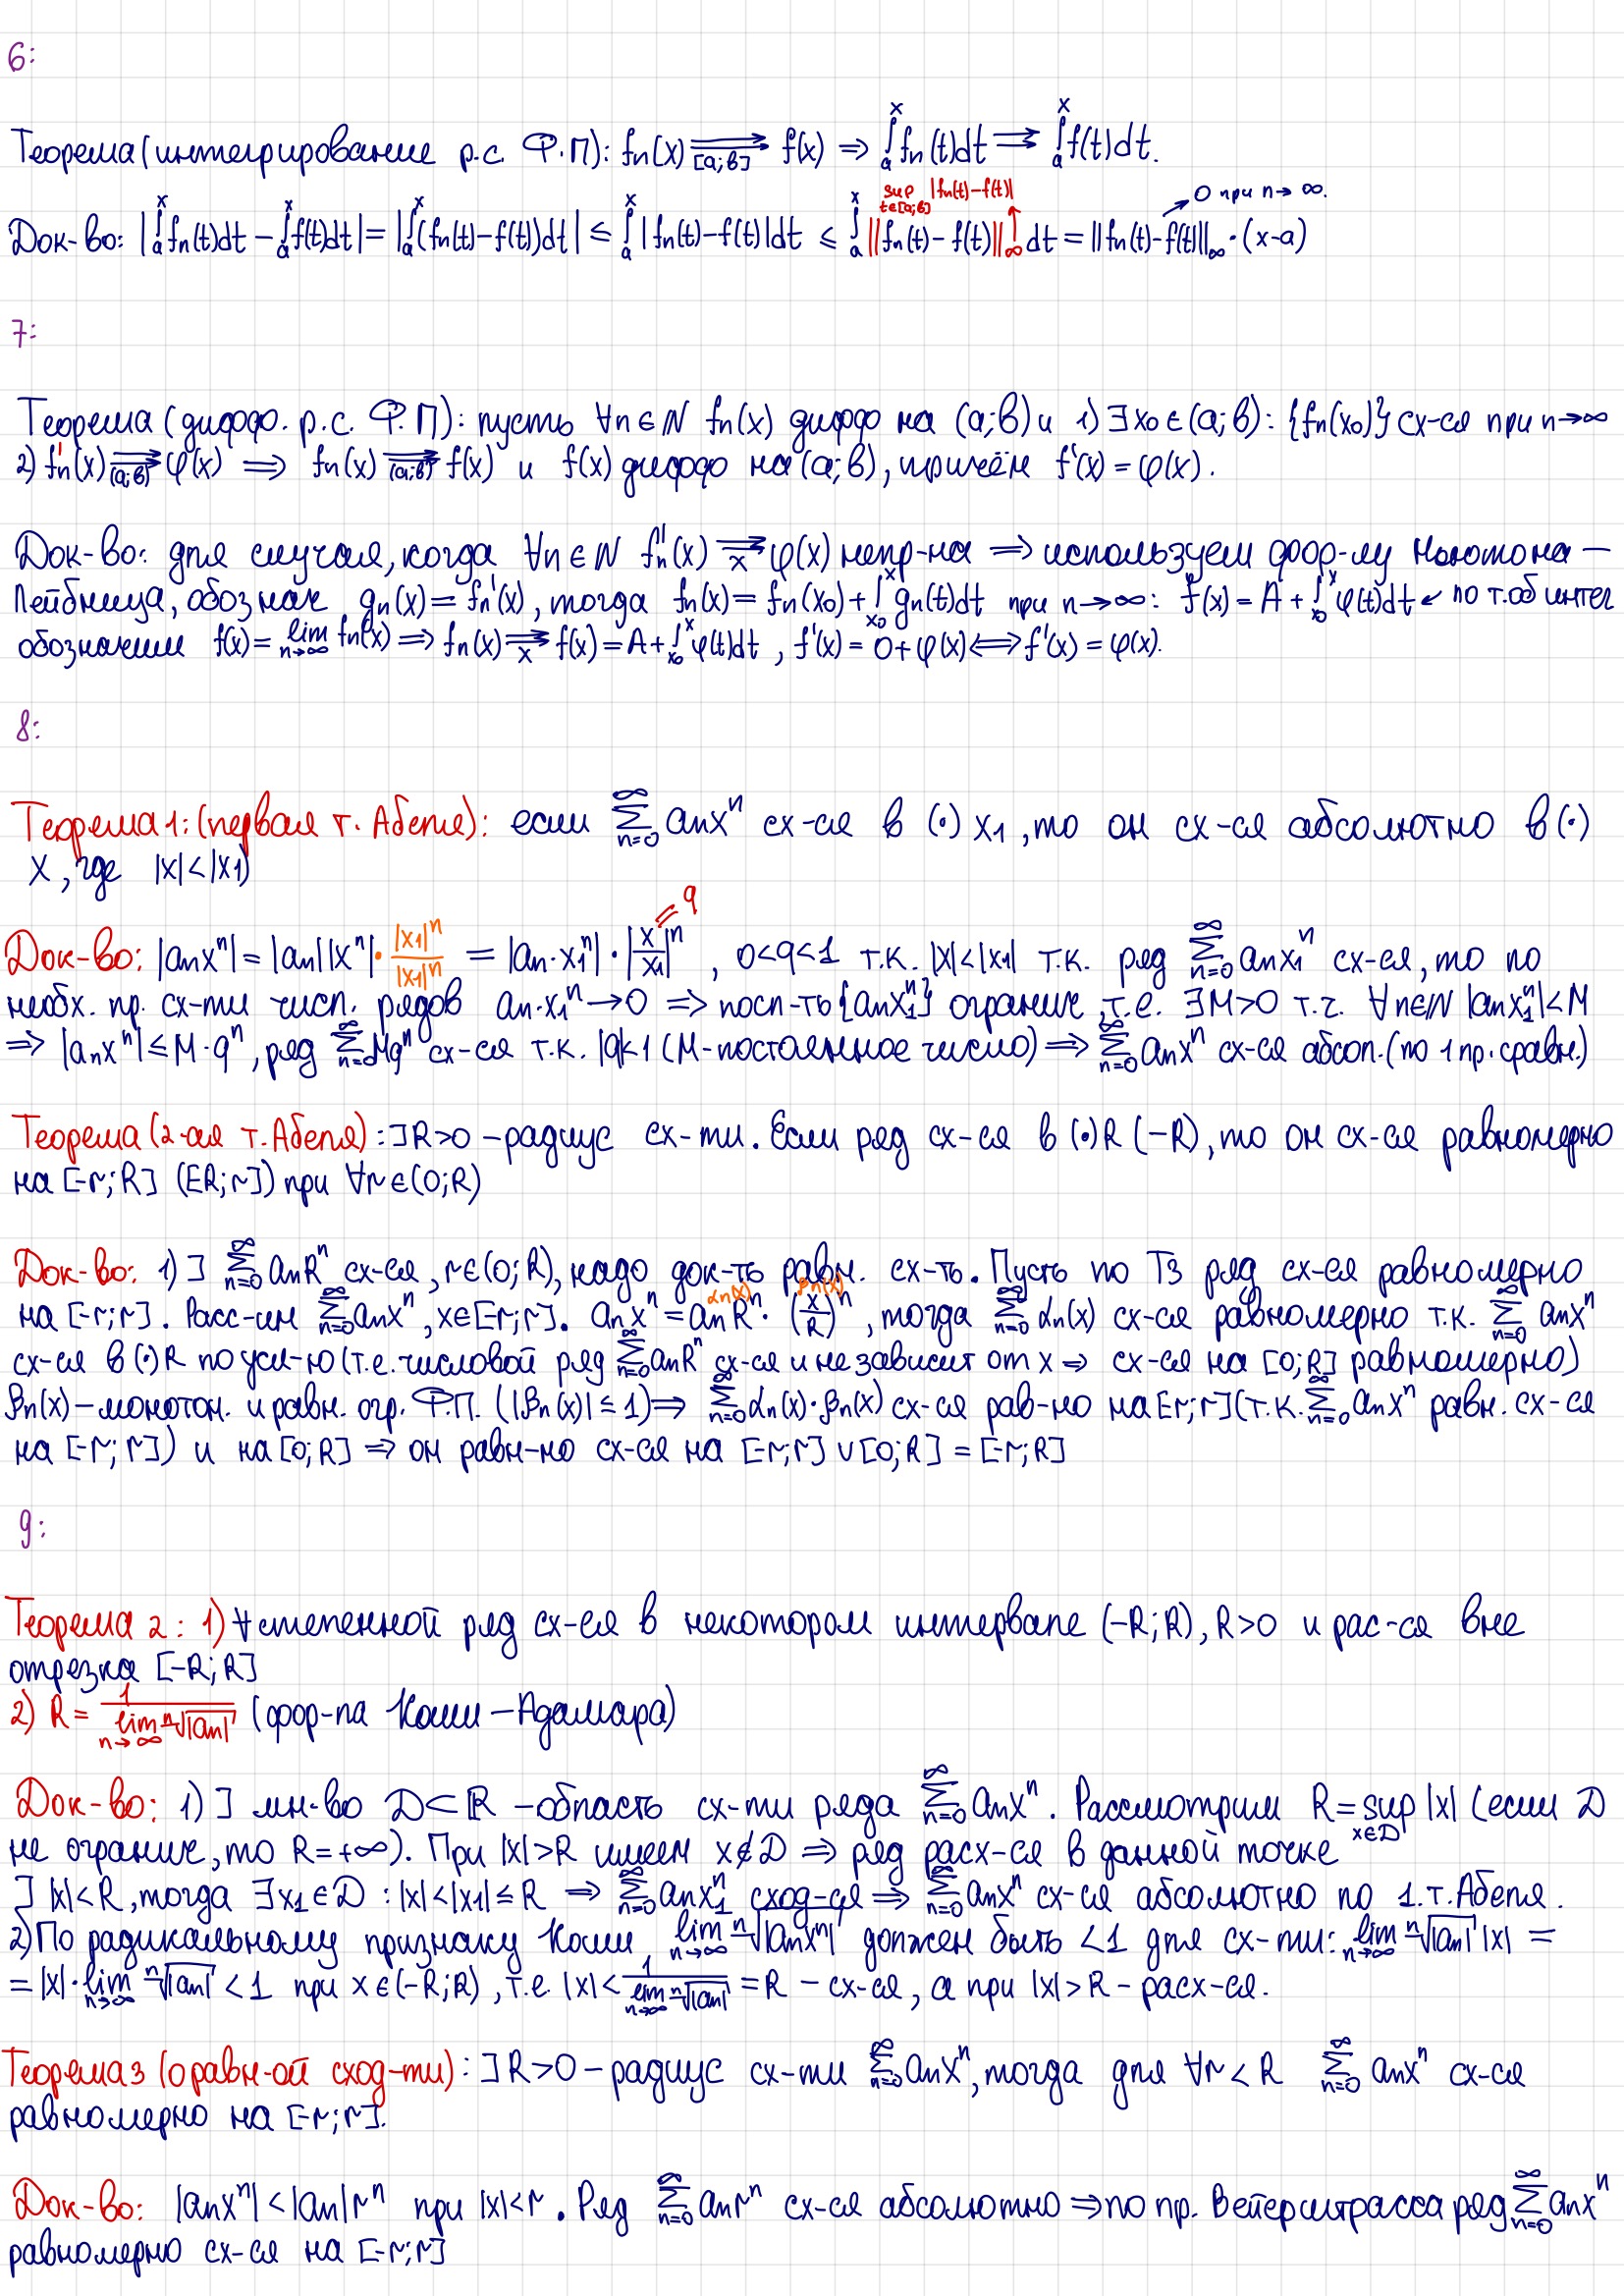 6:
Теорема (интегрирование р.с. Ф.П): fn(x) ⇉[a;b] f(x) ⇒ ∫ₐˣ fn(t)dt ⇉ ∫ₐˣ f(t)dt.
sup t∈[a;b] |fn(t)-f(t)| 0 при n→∞.
Док-во: |∫ₐˣ fn(t)dt - ∫ₐˣ f(t)dt| = |∫ₐˣ (fn(t)-f(t))dt| ≤ ∫ₐˣ |fn(t)-f(t)|dt ≤ ∫ₐˣ ||fn(t)-f(t)||∞ dt = ||fn(t)-f(t)||∞·(x-a)
7:
Теорема (дифф. р.с. Ф.П): пусть ∀n∈N fn(x) дифф на (a;b) и 1) ∃x₀∈(a;b): {fn(x₀)} сх-ся при n→∞
2) fn'(x) ⇉(a;b) φ(x) ⇒ fn(x) ⇉(a;b) f(x) и f(x) дифф на (a;b), причём f'(x) = φ(x).
Док-во: для случая, когда ∀n∈N fn''(x) ⇉x φ(x) непр-на ⇒ используем фор-лу Ньютона –
Лейбница, обознач gn(x) = fn'(x), тогда fn(x) = fn(x₀) + ∫ₓ₀ˣ gn(t)dt при n→∞: f(x) = A + ∫ₓ₀ˣ φ(t)dt ↙ по т.об интег
обозначим f(x) = lim n→∞ fn(x) ⇒ fn(x) ⇉x f(x) = A + ∫ₓ₀ˣ φ(t)dt, f'(x) = 0 + φ(x) ⟺ f'(x) = φ(x).
8:
Теорема 1: (первая т. Абеля): если ∑n=0^∞ anxⁿ сх-ся в (·) x₁, то он сх-ся абсолютно в (·)
x, где |x|<|x₁|
Док-во: |anxⁿ| = |an||xⁿ|·|x₁|ⁿ/|x₁|ⁿ = |an·x₁ⁿ|·|x/x₁|ⁿ = q, 0<q<1 т.к. |x|<|x₁| т.к. ряд ∑n=0^∞ anx₁ⁿ сх-ся, то по
необх. пр. сх-ти числ. рядов an·x₁ⁿ→0 ⇒ посл-ть {anx₁ⁿ} огранич, т.е. ∃M>0 т.ч. ∀n∈N |anx₁ⁿ|<M
⇒ |anxⁿ| ≤ M·qⁿ, ряд ∑n=0^∞ Mqⁿ сх-ся т.к. |q|<1 (M-постоянное число) ⇒ ∑n=0^∞ anxⁿ сх-ся абсол. (по 1 пр. сравн.)
Теорема (2-ая т. Абеля): ∃R>0 – радиус сх-ти. Если ряд сх-ся в (·) R (-R), то он сх-ся равномерно
на [-r;R] ([-R;r]) при ∀r∈(0;R)
Док-во: 1) ∃ ∑n=0^∞ anRⁿ сх-ся, r∈(0;R), надо док-ть равн. сх-ть. Пусть по Т3 ряд сх-ся равномерно
αn(x) βn(x)
на [-r;r]. Расс-им ∑n=0^∞ anxⁿ, x∈[-r;r]. anxⁿ = anRⁿ·(x/R)ⁿ, тогда ∑n=0^∞ αn(x) сх-ся равномерно т.к. ∑n=0^∞ anxⁿ
сх-ся в (·) R по усл-ю (т.е. числовой ряд ∑n=0^∞ anRⁿ сх-ся и не зависит от x ⇒ сх-ся на [0;R] равномерно)
βn(x) – монотон. и равн. огр. Ф.П. (|βn(x)| ≤ 1) ⇒ ∑n=0^∞ αn(x)·βn(x) сх-ся рав-но на [-r;r] (т.к. ∑n=0^∞ anxⁿ равн. сх-ся
на [-r;r]) и на [0;R] ⇒ он равн-но сх-ся на [-r;r] ∪ [0;R] = [-r;R]
9:
Теорема 2: 1) ∀степенной ряд сх-ся в некотором интервале (-R;R), R>0 и рас-ся вне
отрезка [-R;R]
2) R = 1/(lim n→∞ ⁿ√|an|) (фор-ла Коши – Адамара)
Док-во: 1) ∃ мн-во D⊂R – область сх-ти ряда ∑n=0^∞ anxⁿ. Рассмотрим R = sup x∈D |x| (если D
не огранич, то R=+∞). При |x|>R имеем x∉D ⇒ ряд расх-ся в данной точке
∃ |x|<R, тогда ∃x₁∈D: |x|<|x₁|≤R ⇒ ∑n=0^∞ anx₁ⁿ сход-ся ⇒ ∑n=0^∞ anxⁿ сх-ся абсолютно по 1.т.Абеля.
2) По радикальному признаку Коши, lim n→∞ ⁿ√|anxⁿ| должен быть <1 для сх-ти: lim n→∞ ⁿ√|an| |x| =
= |x|·lim n→∞ ⁿ√|an| < 1 при x∈(-R;R), т.е. |x| < 1/(lim n→∞ ⁿ√|an|) = R – сх-ся, а при |x|>R – расх-ся.
Теорема 3 (о равн-ой сход-ти): ∃R>0 – радиус сх-ти ∑n=0^∞ anxⁿ, тогда для ∀r<R ∑n=0^∞ anxⁿ сх-ся
равномерно на [-r;r].
Док-во: |anxⁿ|<|an|rⁿ при |x|<r. Ряд ∑n=0^∞ anrⁿ сх-ся абсолютно ⇒ по пр. Вейерштрасса ряд ∑n=0^∞ anxⁿ
равномерно сх-ся на [-r;r]